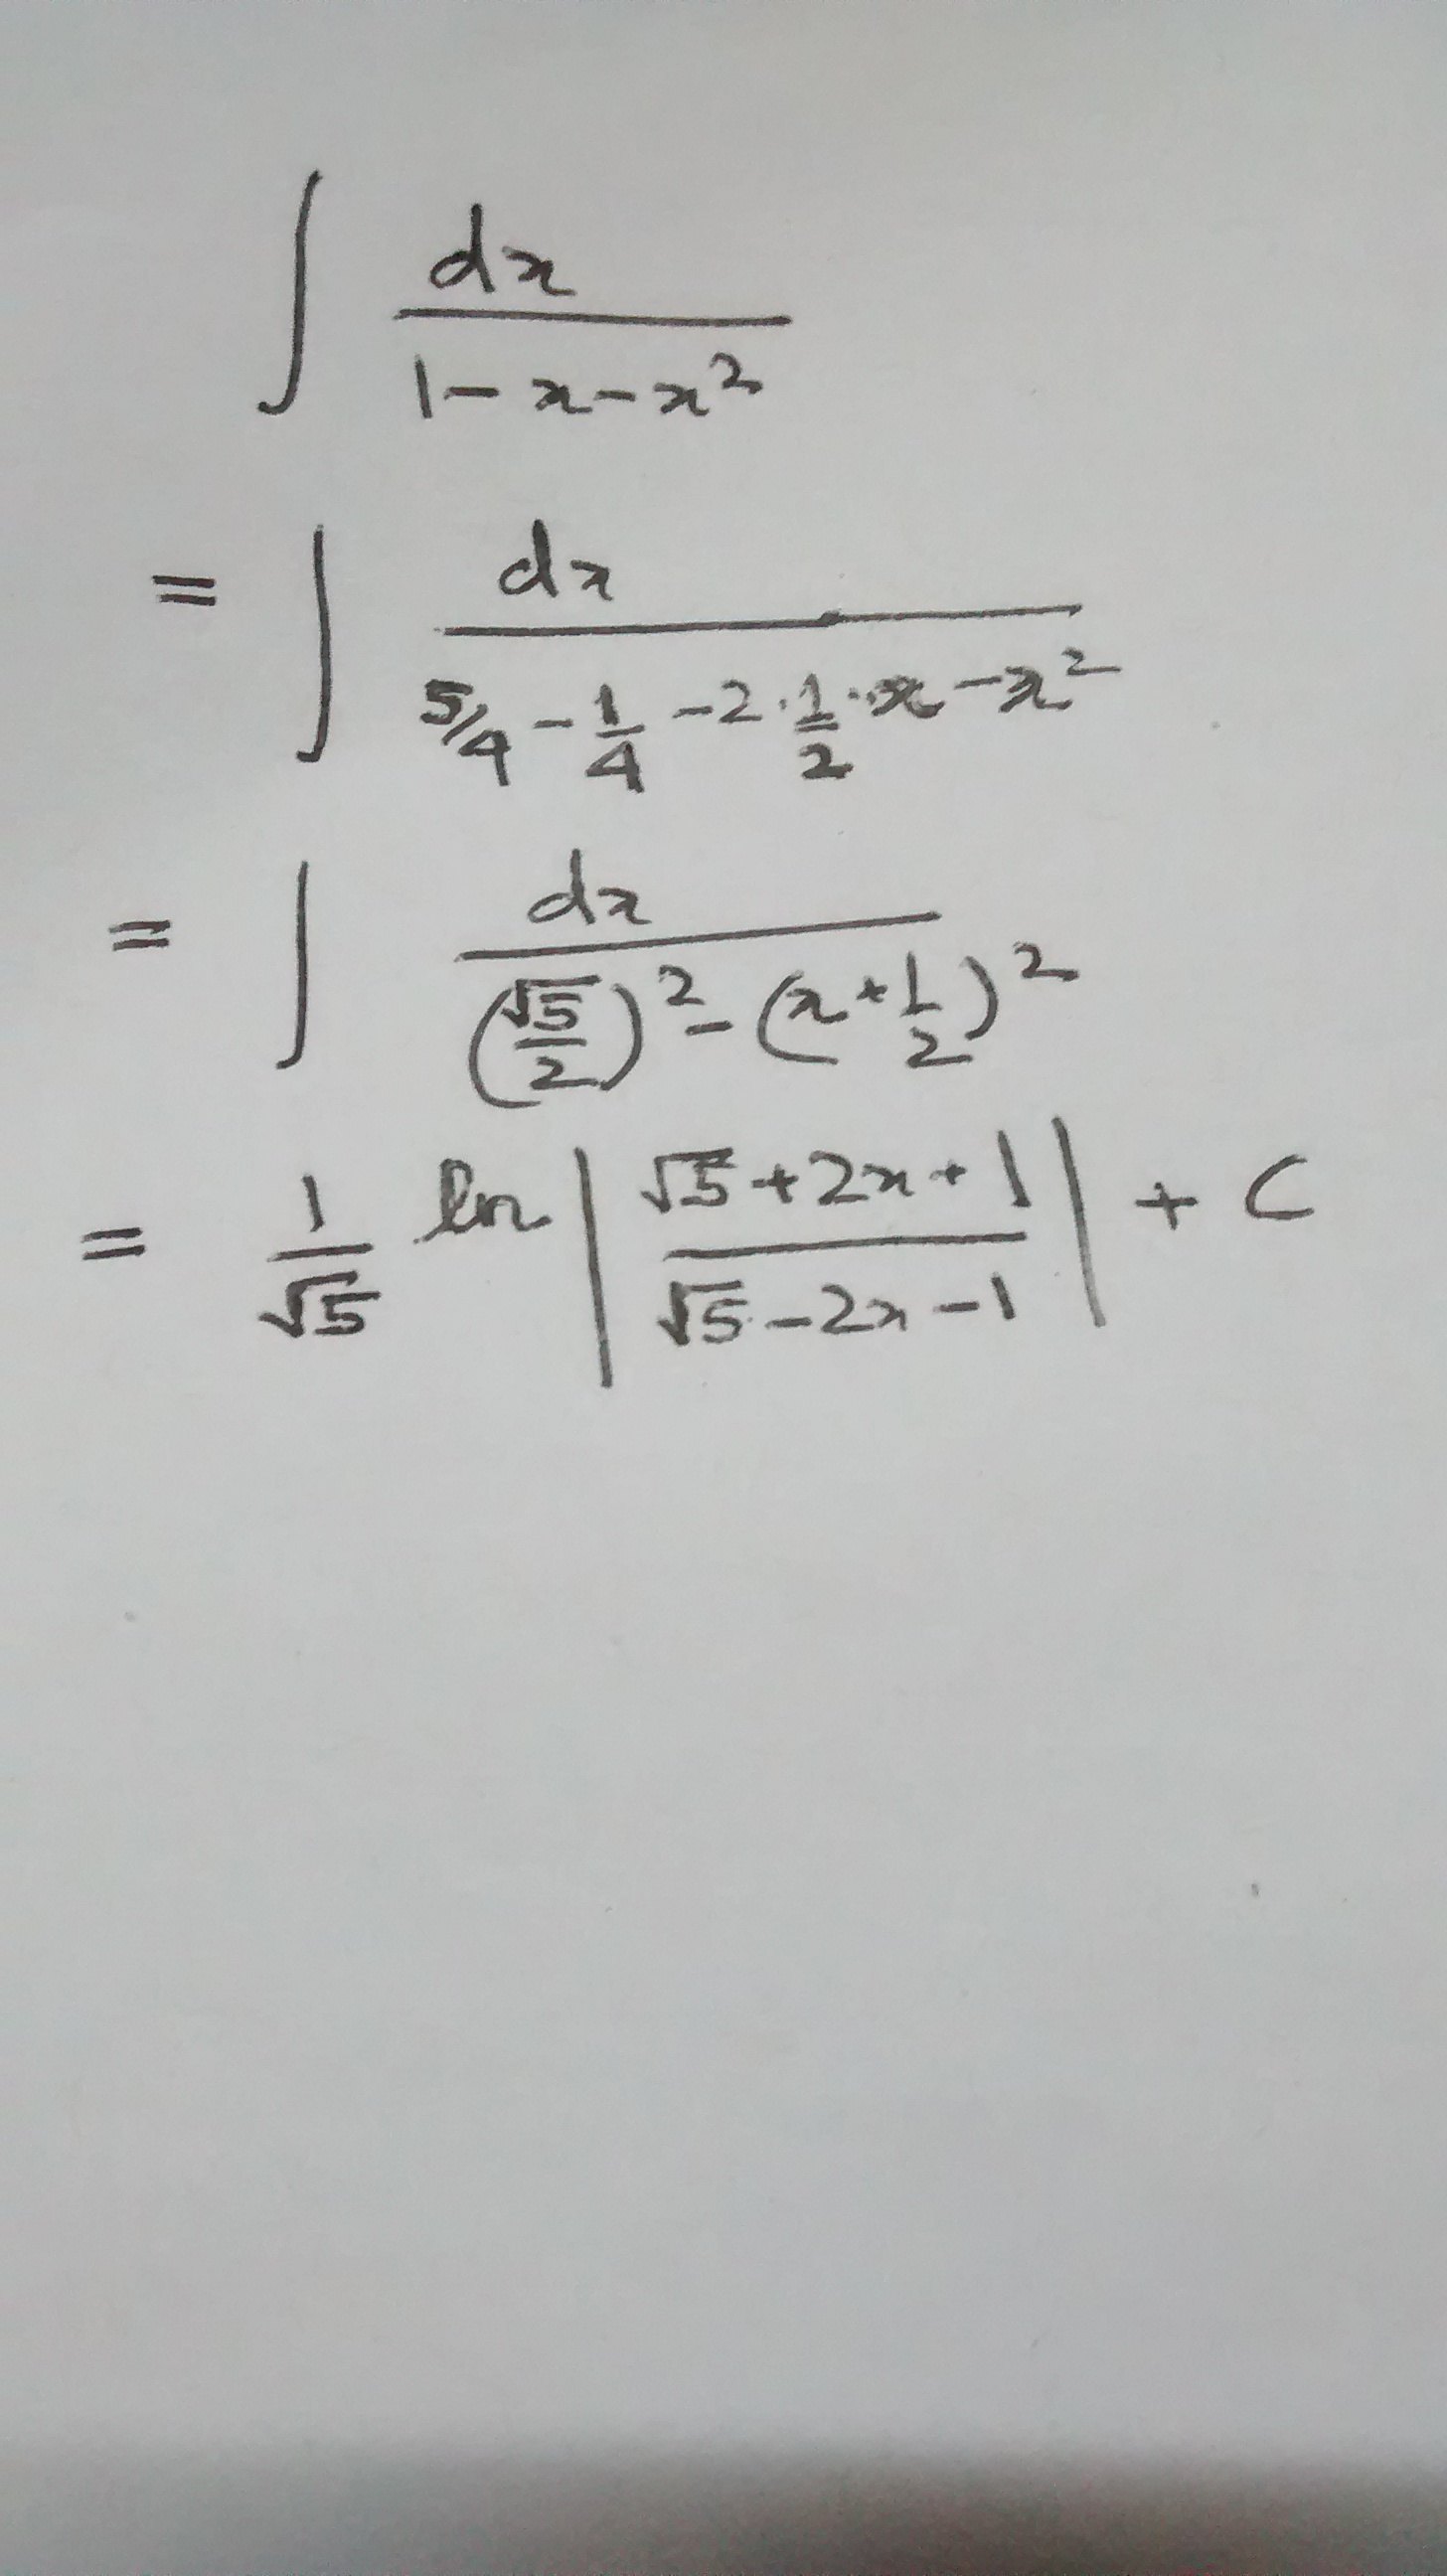 ∫ dx / (1 - x - x²)
= ∫ dx / (5/4 - 1/4 - 2 · 1/2 · x - x²)
= ∫ dx / ((√5/2)² - (x + 1/2)²)
= 1/√5 ln | (√5 + 2x + 1) / (√5 - 2x - 1) | + C